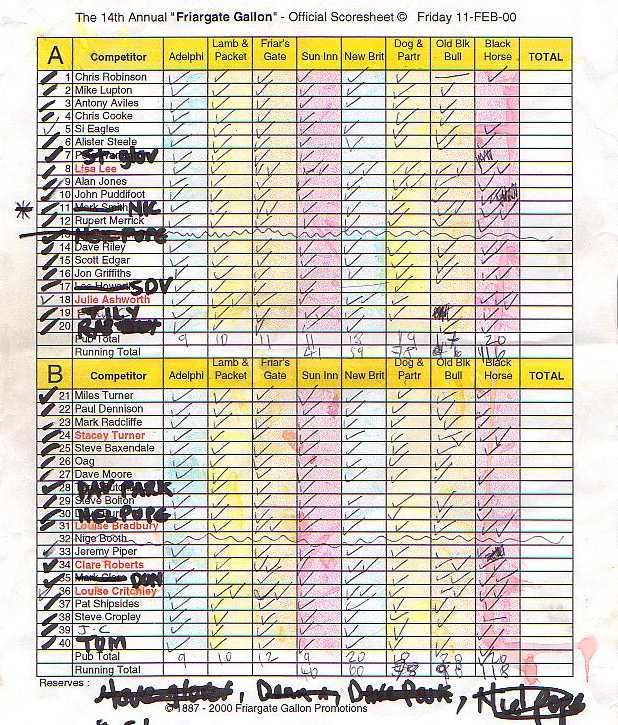 The 14th Annual "Friargate Gallon" - Official Scoresheet © Friday 11-FEB-00
A Competitor Adelphi Lamb & Packet Friar's Gate Sun Inn New Brit Dog & Partr Old Blk Bull Black Horse TOTAL
1 Chris Robinson
2 Mike Lupton
3 Antony Aviles
4 Chris Cooke
5 Si Eagles
6 Alister Steele
7
8 Lisa Lee
9 Alan Jones
10 John Puddifoot
11 Mark Smith NIC
12 Rupert Merrick
13 NEL POPE
14 Dave Riley
15 Scott Edgar
16 Jon Griffiths
17 Lee Howard SOV
18 Julie Ashworth
19 TILY
20
Pub Total 9 10 11 11 18 19 17 20
Running Total 41 59 78 116
B Competitor Adelphi Lamb & Packet Friar's Gate Sun Inn New Brit Dog & Partr Old Blk Bull Black Horse TOTAL
21 Miles Turner
22 Paul Dennison
23 Mark Radcliffe
24 Stacey Turner
25 Steve Baxendale
26 Oag
27 Dave Moore
28 DAV PARK
29 Steve Bolton
30 NEL POPE
31 Louise Bradbury
32 Nige Booth
33 Jeremy Piper
34 Clare Roberts
35 Mark Clare DON
36 Louise Critchley
37 Pat Shipsides
38 Steve Cropley
39 J-C
40 TOM
Pub Total 9 10 12 9 20 20
Running Total 40 60 78 98 118
Reserves :
© 1887 - 2000 Friargate Gallon Promotions